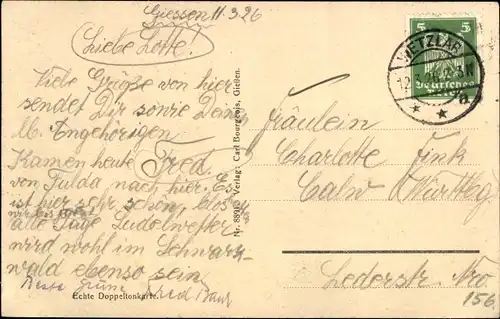 Giessen 11.3.26
Liebe Lotte!
Viele Grüße von hier
sendet Dir sowie Dein
lb. Angehörigen
Fred.
Kamen heute
von Fulda nach hier. Es
ist hier sehr schön, blos
alle Tage Sudelwetter
wird wohl im Schwarz-
wald ebenso sein
Beste Grüße
Fred
Echte Doppeltonkarte.
Verlag: Carl Bourgeois, Gießen.
5 5
Deutsches Reich
WETZLAR
12.3.26
* * a
Fräulein
Charlotte Fink
Calw (Württbg
Lederstr. Nro
156